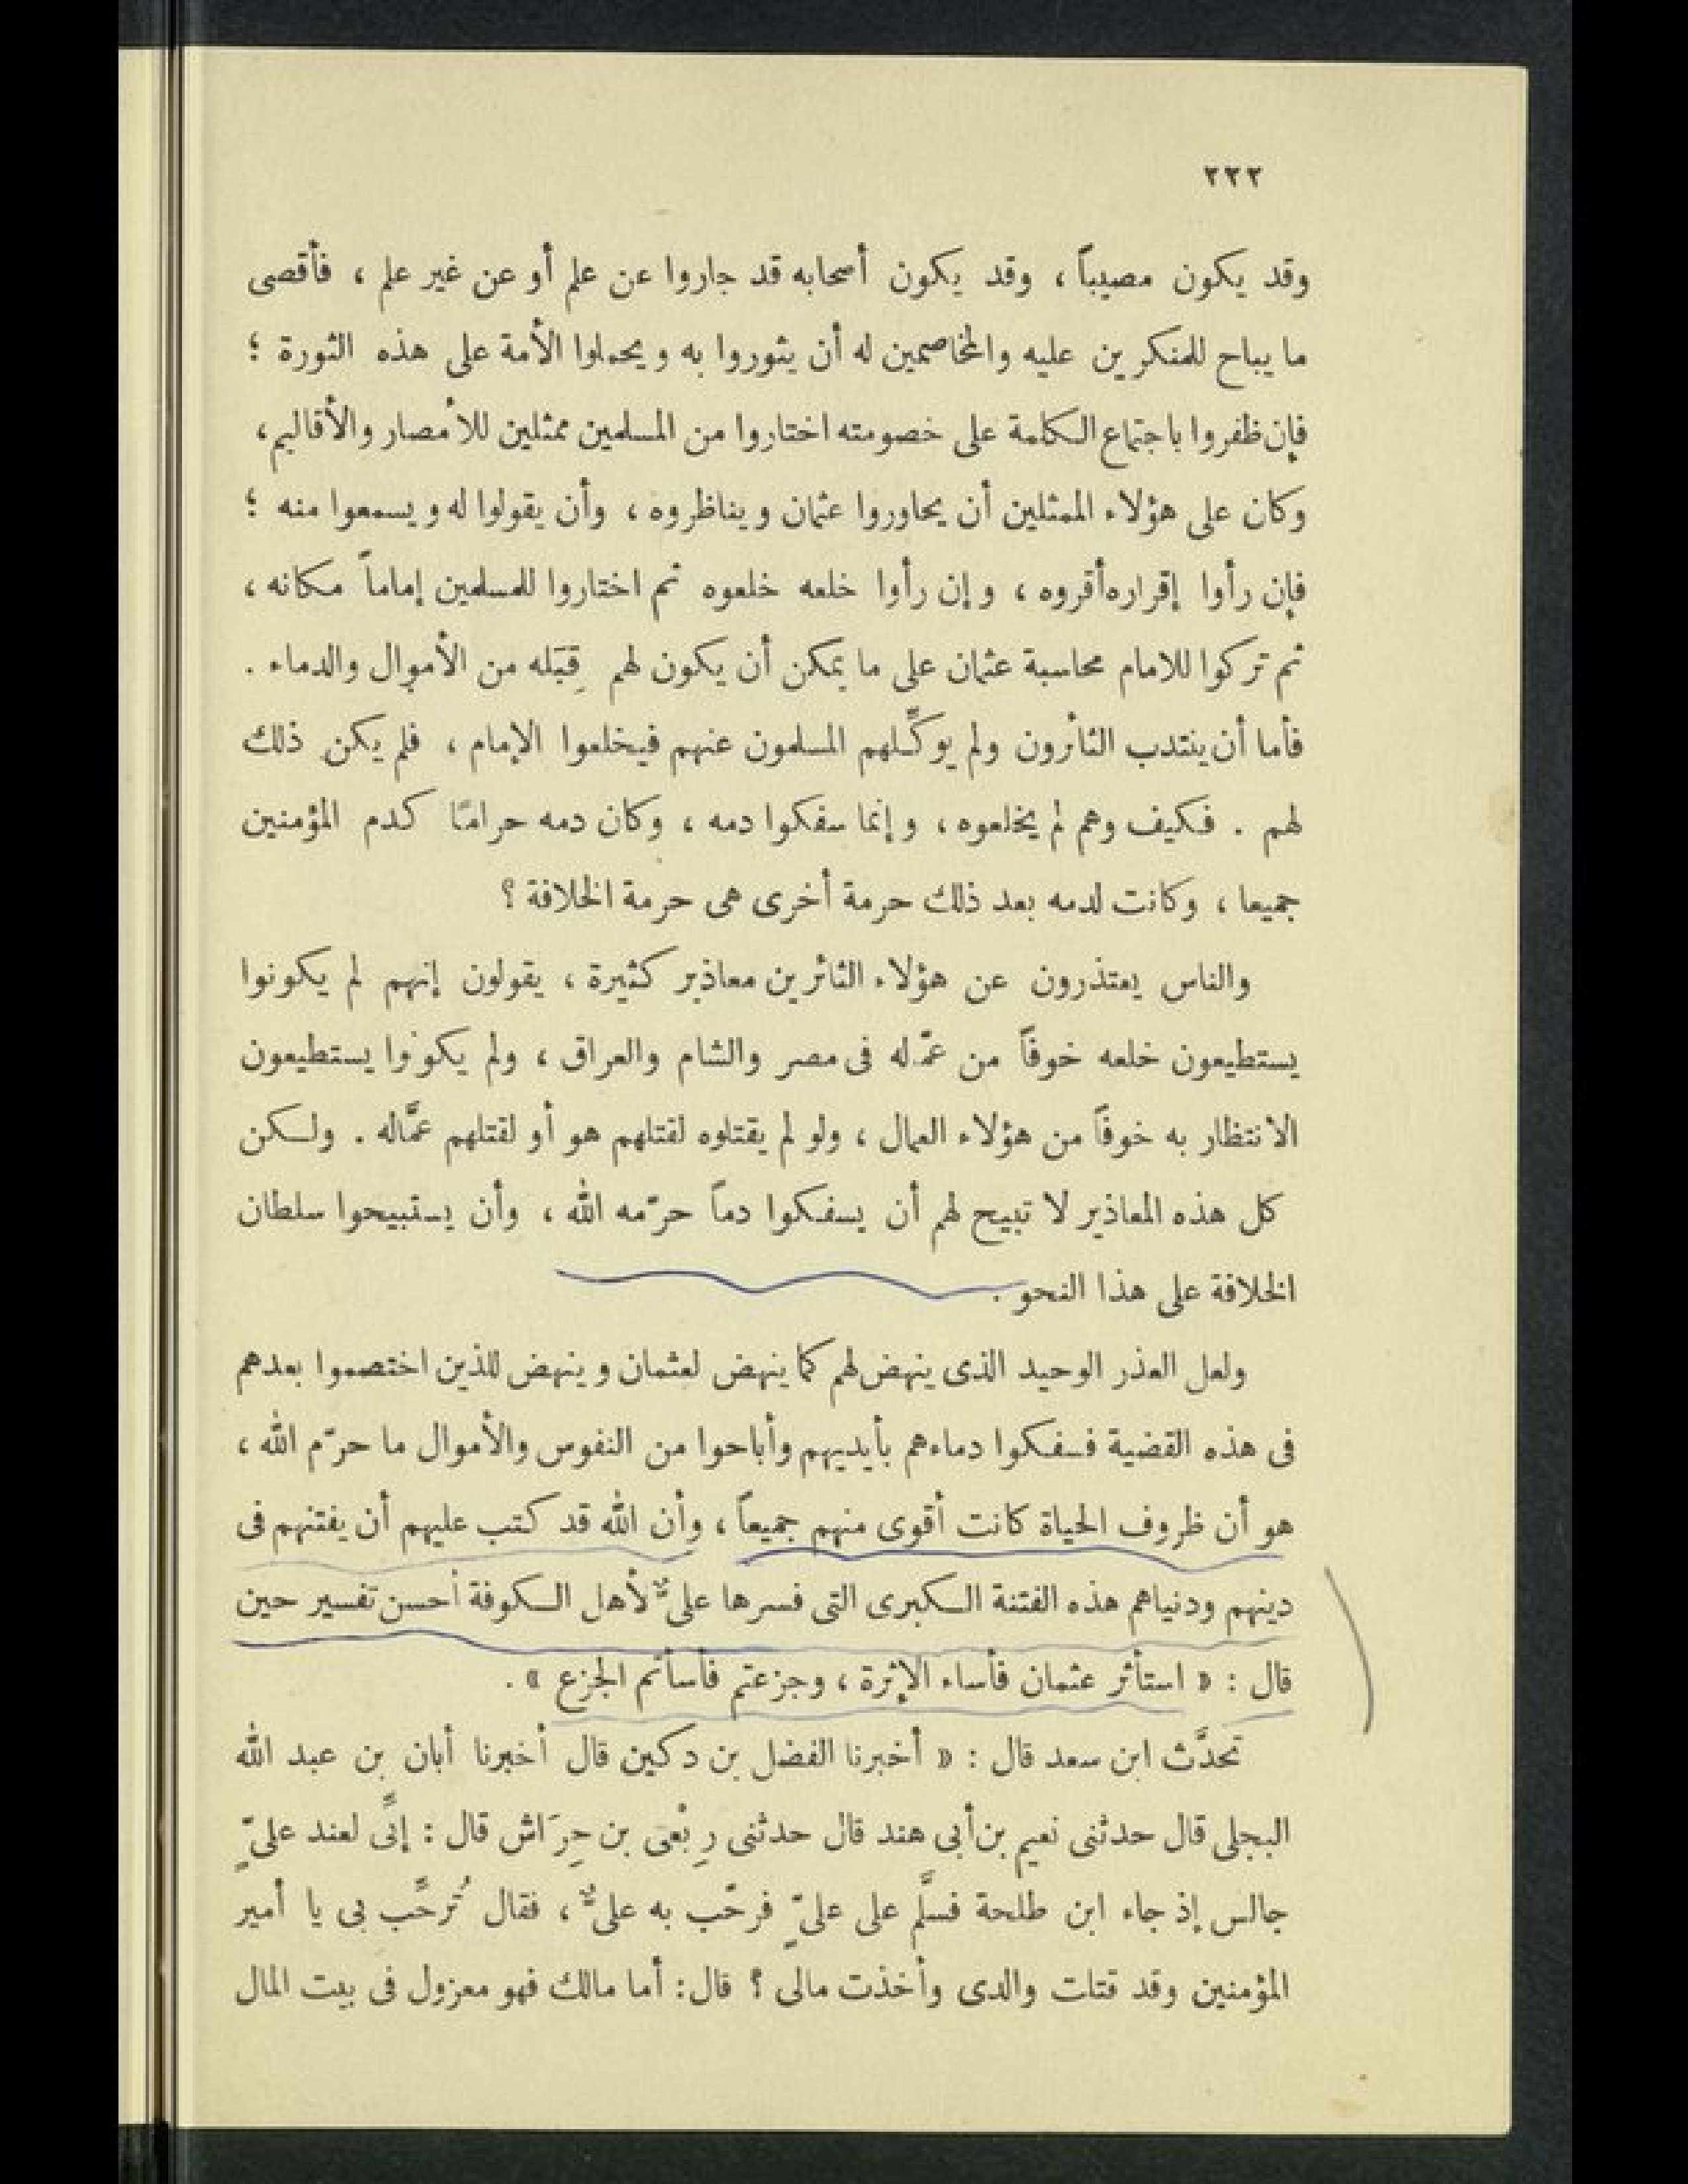 ٢٢٢
وقد يكون مصيباً ، وقد يكون أصحابه قد جاروا عن علم أو عن غير علم ، فأقصى
ما يباح للمنكرين عليه والمخاصمين له أن يثوروا به ويحملوا الأمة على هذه الثورة ؛
فإن ظفروا باجتماع الكلمة على خصومته اختاروا من المسلمين ممثلين للأمصار والأقاليم ،
وكان على هؤلاء الممثلين أن يحاوروا عثمان ويناظروه ، وأن يقولوا له ويسمعوا منه ؛
فإن رأوا إقراره أقروه ، وإن رأوا خلعه خلعوه ثم اختاروا للمسلمين إماماً مكانه ،
ثم تركوا للامام محاسبة عثمان على ما يمكن أن يكون لهم قِبَله من الأموال والدماء .
فأما أن ينتدب الثائرون ولم يوكِّلهم المسلمون عنهم فيخلعوا الإمام ، فلم يكن ذلك
لهم . فكيف وهم لم يخلعوه ، وإنما سفكوا دمه ، وكان دمه حرامًا كدم المؤمنين
جميعا ، وكانت لدمه بعد ذلك حرمة أخرى هى حرمة الخلافة ؟
والناس يعتذرون عن هؤلاء الثائرين معاذير كثيرة ، يقولون إنهم لم يكونوا
يستطيعون خلعه خوفاً من عمّاله فى مصر والشام والعراق ، ولم يكونوا يستطيعون
الانتظار به خوفاً من هؤلاء العمال ، ولو لم يقتلوه لقتلهم هو أو لقتلهم عمَّاله . ولكن
كل هذه المعاذير لا تبيح لهم أن يسفكوا دماً حرّمه الله ، وأن يستبيحوا سلطان
الخلافة على هذا النحو .
ولعل العذر الوحيد الذى ينهض لهم كما ينهض لعثمان وينهض للذين اختصموا بعدهم
فى هذه القضية فسفكوا دماءهم بأيديهم وأباحوا من النفوس والأموال ما حرّم الله ،
هو أن ظروف الحياة كانت أقوى منهم جميعاً ، وأن الله قد كتب عليهم أن يفتنهم فى
دينهم ودنياهم هذه الفتنة الكبرى التى فسرها علىٌّ لأهل الكوفة أحسن تفسير حين
قال : « استأثر عثمان فأساء الإثرة ، وجزعتم فأسأتم الجزع » .
تحدَّث ابن سعد قال : « أخبرنا الفضل بن دكين قال أخبرنا أبان بن عبد الله
البجلى قال حدثنى نعيم بن أبى هند قال حدثنى رِبْعى بن حِرَاش قال : إنَّى لعند علىّ
جالس إذ جاء ابن طلحة فسلَّم على علىّ فرحّب به علىٌّ ، فقال تُرحِّب بى يا أمير
المؤمنين وقد قتلت والدى وأخذت مالى ؟ قال : أما مالك فهو معزول فى بيت المال